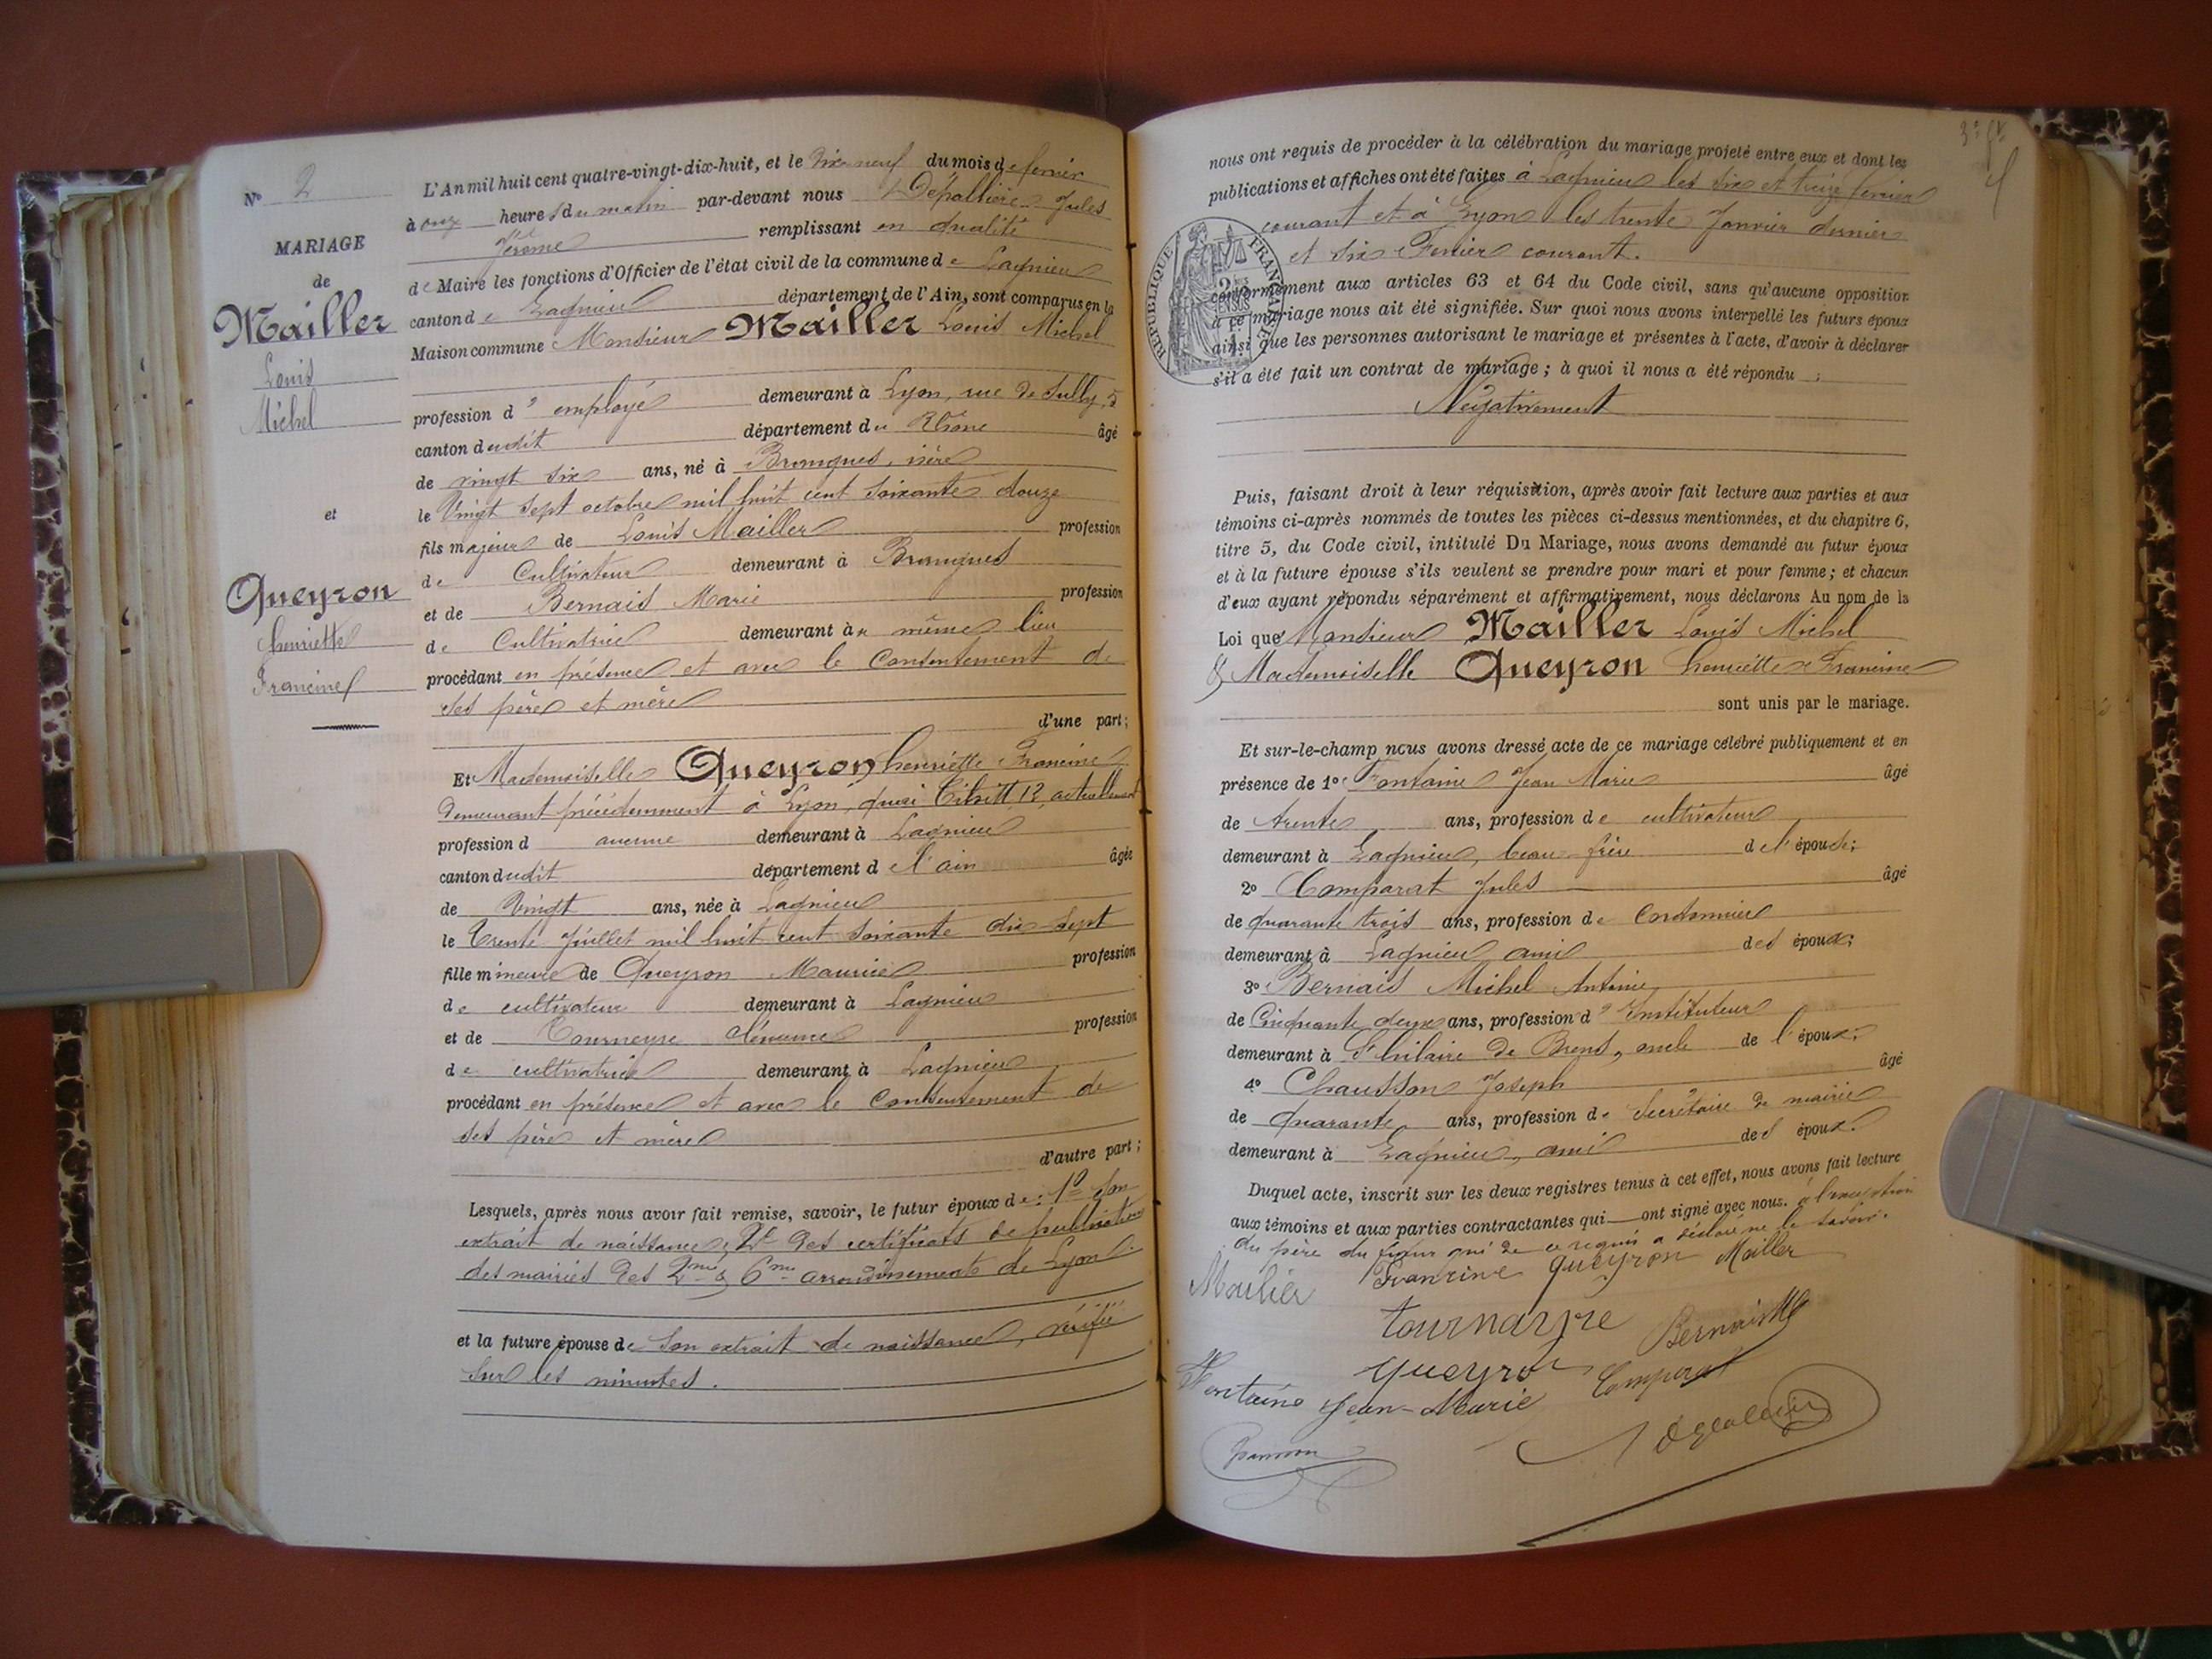 N° 2
MARIAGE
de
Mailler
Louis
Michel
et
Queyron
henriette
Francine
L'An mil huit cent quatre-vingt-dix-huit, et le Dix neuf du mois de fevrier
à onze heures du matin par-devant nous Dépallière Jules
Jérome remplissant en qualité
de Maire les fonctions d'Officier de l'état civil de la commune de Lagnieu
canton de Lagnieu département de l'Ain, sont comparus en la
Maison commune Monsieur Mailler Louis Michel
profession d'employé demeurant à Lyon, rue de Sully, 5
canton dudit département du Rhône âgé
de vingt six ans, né à Brangues, isère
le Vingt sept octobre mil huit cent soixante douze
fils majeur de Louis Mailler profession
de Cultivateur demeurant à Brangues
et de Bernais Marie profession
de Cultivatrice demeurant au même lieu
procédant en présence et avec le Consentement de
ses père et mère
d'une part;
Et Mademoiselle Queyron henriette Francine
demeurant précédemment à Lyon, quai 12 actuellement
profession d aucune demeurant à Lagnieu
canton dudit département de l'ain âgée
de Vingt ans, née à Lagnieu
le Trente Juillet mil huit cent soixante dix-sept
fille mineure de Queyron Maurice profession
de cultivateur demeurant à Lagnieu
et de Tourneyre profession
de cultivatrice demeurant à Lagnieu
procédant en présence et avec le Consentement de
ses père et mère
d'autre part;
Lesquels, après nous avoir fait remise, savoir, le futur époux de: 1° Son
extrait de naissance; 2° Des certificats de publication
des mairies des 2me & 6me arrondissements de Lyon.
et la future épouse de Son extrait de naissance, vérifié
sur les minutes.
3e ft
nous ont requis de procéder à la célébration du mariage projeté entre eux et dont les
publications et affiches ont été faites à Lagnieu les six et treize fevrier
courant et à Lyon les trente Janvier dernier
et six Fevrier courant.
REPUBLIQUE FRANÇAISE
conformément aux articles 63 et 64 du Code civil, sans qu'aucune opposition
à ce mariage nous ait été signifiée. Sur quoi nous avons interpellé les futurs époux
ainsi que les personnes autorisant le mariage et présentes à l'acte, d'avoir à déclarer
s'il a été fait un contrat de mariage; à quoi il nous a été répondu :
Négativement
Puis, faisant droit à leur réquisition, après avoir fait lecture aux parties et aux
témoins ci-après nommés de toutes les pièces ci-dessus mentionnées, et du chapitre 6,
titre 5, du Code civil, intitulé Du Mariage, nous avons demandé au futur époux
et à la future épouse s'ils veulent se prendre pour mari et pour femme; et chacun
d'eux ayant répondu séparément et affirmativement, nous déclarons Au nom de la
Loi que Monsieur Mailler Louis Michel
& Mademoiselle Queyron henriette Francine
sont unis par le mariage.
Et sur-le-champ nous avons dressé acte de ce mariage célébré publiquement et en
présence de 1° Fontaine Jean Marie âgé
de trente ans, profession de cultivateur
demeurant à Lagnieu, beau frère de l'épouse;
2° Comparat Jules âgé
de quarante trois ans, profession de Cordonnier
demeurant à Lagnieu ami des époux;
3° Bernais Michel Antoine
de Cinquante deux ans, profession d'Instituteur
demeurant à St hilaire de Brens, oncle de l'époux;
4° Chausson Joseph âgé
de quarante ans, profession de Secrétaire de mairie
demeurant à Lagnieu, ami des époux.
Duquel acte, inscrit sur les deux registres tenus à cet effet, nous avons fait lecture
aux témoins et aux parties contractantes qui ont signé avec nous. à l'exception
du père du futur qui de ce requis a déclaré ne le savoir.
Mailler Francine queyron Mailler
tournayre Bernais
queyron Comparat
Fontaine Jean-Marie